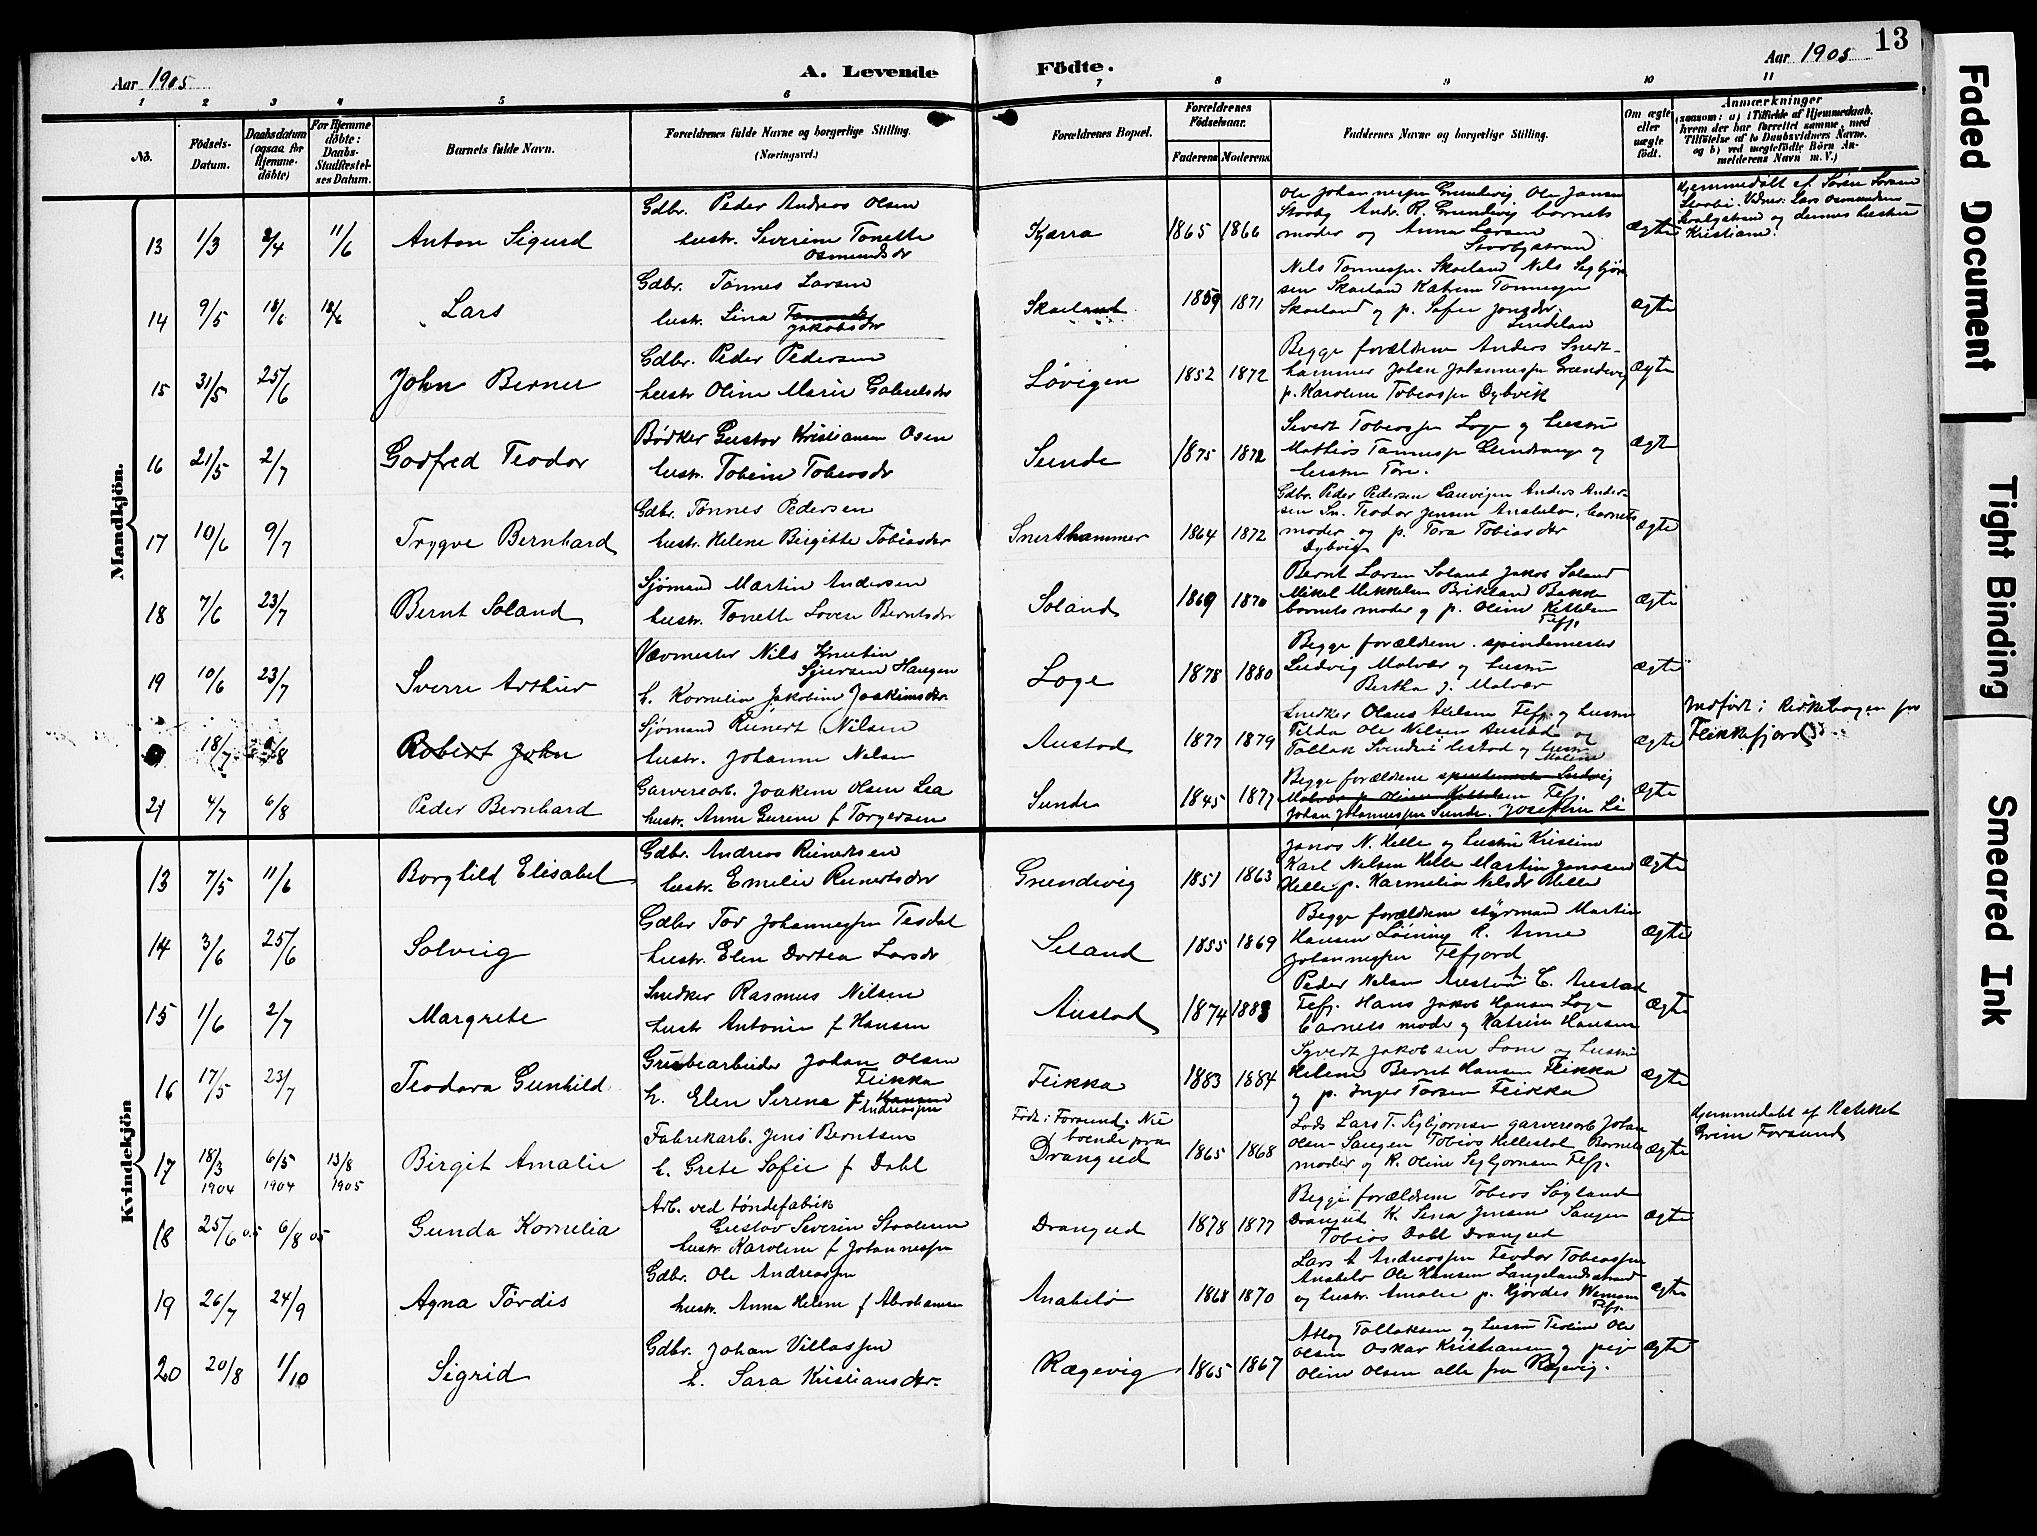 13
Aar 1905
A. Levende
Födte.
Aar 1905
1 2 3 4 5 6 7 8 9 10 11
No.
Födsels-
Datum.
Daabsdatum
(ogsaa for
Hjemme-
döbte)
For Hjemme
döbte:
Daabs-
Stadfæstel-
ses Datum.
Barnets fulde Navn.
Forældrenes fulde Navne og borgerlige Stilling.
(Næringsvei.)
Forældrenes Bopæl.
Forældrenes
Födselsaar.
Faderens
Moderens
Faddernes Navne og borgerlige Stilling.
Om ægte
eller
uægte
födt.
Anmærkninger
(saasom: a) i Tilfælde af Hjemmedaab,
hvem der har forrettet samme, med
Tilföielse af to Daabsvidners Navne.
og b) ved uægtefödte Börn An-
melderens Navn m. V.)
Mandkjön.
13 1/3 2/4 11/6 Anton Sigurd
Gdbr. Peder Andreas Olsen
hustr. Severine Tonette
Osmundsdr
Kjørra 1865 1866
Ole Johannesen Grundvig Ole Jansen
Stovby Andr. R. Grundvig barnets
moder og Anna Larsen
ægte
Hjemmedøbt af Søren
Vidner Lars Osmundsen
og dennes hustru
Kristiane.
14 9/5 18/6 18/6 Lars
Gdbr. Tønnes Larsen
hustr. Lina
Jakobsdr
Skoeland 1859 1871
Nils Tønnesen Skoeland Nils Segbjørn
sen Skoeland Katrine Tønnesen
Skoeland og p. Sofie
ægte
15 31/5 25/6 John Berner
Gdbr. Peder Pedersen
hustr Oline Marie Gabrielsdr
Løvigen 1852 1872
Begge forældrene Anders Snert-
hammer Johan Johannesen Grundvig
p. Karoline Tobiassen Dybvik
ægte
16 21/5 2/7 Godfred Teodor
Bødker Gustav Kristiansen Osen
hustr. Tobine Tobiasdr
Sunde 1875 1872
Sivert Tobiassen Loge og hustru
Mathias Tønnesen og
hustru Tore.
ægte
17 10/6 9/7 Trygve Bernhard
Gdbr. Tønnes Pedersen
hustr. Helene Birgitte Tobiasdr
Snerthammer 1864 1872
Gdbr. Peder Pedersen Lauvigen Anders Ander-
sen Sn. Teodor Jensen Anabeløe, barnets
moder og p. Tora Tobiasdr
Dybvig
ægte
18 7/6 23/7 Bernt Soland
Sjømand Martin Andersen
hustr. Tonette Lovise Berntsdr
Soland 1869 1870
Bernt Larsen Soland Jakob Soland
Mikal Mikkelsen Birkeland Bakke
barnets moder og p. Oline Kittelsen
Flfj.
ægte
19 10/6 23/7 Sverre Arthur
Vævmester Nils Knutin
Syversen Haugen
h. Kornelia Jakobine Joakimsdr.
Loge 1878 1880
Begge forældrene. spindemester
Ludvig Molvær og hustru
Bertha J. Molvær
ægte
18/7 6/8 Robert John
Sjømand Reinert Nilsen
hustr. Johanne Nilsen
Austad 1877 1879
Snedker Olaus Axelsen Flfj. og hustru
Tilda Ole Nilsen Austad og
Tallak og hustru
Maline
ægte
Indført i Kirkebogen for
Flekkefjord
21 4/7 6/8 Peder Bernhard
Garverarb. Joakim Olsen Lea
hustr. Anne Gurine f Torgersen
Sunde 1845 1877
Begge forældrene spindemester Ludvig
Molvær p. Oline Kittelsen Flfj.
Johan Johannessen Sunde. Josefine Li
ægte
Kvindekjön
13 7/5 11/6 Borghild Elisabet
Gdbr. Andreas Reinertsen
hustr. Emilie Reinertsdr
Grundvig 1851 1863
Janos N. Helle og hustru Kristine
Karl Nilsen Helle Martin Janosen
Helle p. Karmelia Nilsdr Helle
ægte
14 3/6 25/6 Solveig
Gdbr Tor Johannessen Tesdal
hustr. Elen Dortea Larsdr
Seland 1855 1869
Begge forældrene styrmand Martin
Hansen Løining K. Anne
Johannessen Flfjord
ægte
15 1/6 2/7 Margrete
Snedker Rasmus Nilsen
hustr Antonie f Hansen
Austad 1874 1883
Peder Nilsen Austad h. C. Austad
Flfj. Hans Jakob Hansen Loge
barnets mode og Katrine Hansen
ægte
16 17/5 23/7 Teodora Gunhild
Grubearbeider Johan Olsen
Flikka
h. Elen Serena f Hansen
Andreassen
Flikka 1883 1884
Syvert Jakobsen Lom og hustru
Helene Bernt Hansen Flikka
og p. Inger Torsen Flikka
ægte
17 18/3 1904 6/5 1904 13/8 1905 Birgit Amalie
Fabrikarb. Jens Berntsen
h. Grete Sofie f Dahl
Født i Forsund. Nu
boende paa
Drangeid 1865 1868
Lods Lars T. Segbjørnsen garverarb Johan
Olsen Saugen Tobias Hellestøl Barnets
moder og K. Oline Segbjørnsen Flfj.
ægte
Hjemmedøbt af Kateket
Grim Forsund
18 25/6 05 6/8 05 Gunda Kornelia
Arb. ved tøndefabrik
Gustav Severin Staalesen
hustr Karoline f Johannessen
Drangeid 1878 1877
Begge forældrene Tobias Søyland
Drangeid K. Sina Jensen Saugen
Tobias Dahl Drangeid
ægte
19 26/7 24/9 Agna Tordis
Gdbr. Ole Andreassen
hustr. Anna Helene f Abrahamsen
Anabeløe 1868 1870
Lars A Andreassen Teodor Tobiassen
Anabeløe Ole Hansen Langelandsstrand
og hustr. Amalie p. Hjørdis
Flfj.
ægte
20 20/8 1/10 Sigrid
Gdbr. Johan Villassen
h. Sara Kristiansdr.
Rægevig 1865 1867
Aslag Tallaksen og hustru Teoline Ole
Olsen Oskar Kristiansen og pige
Oline Olsen alle fra Rægevig.
ægte
Faded Document
Tight Binding
Smeared Ink